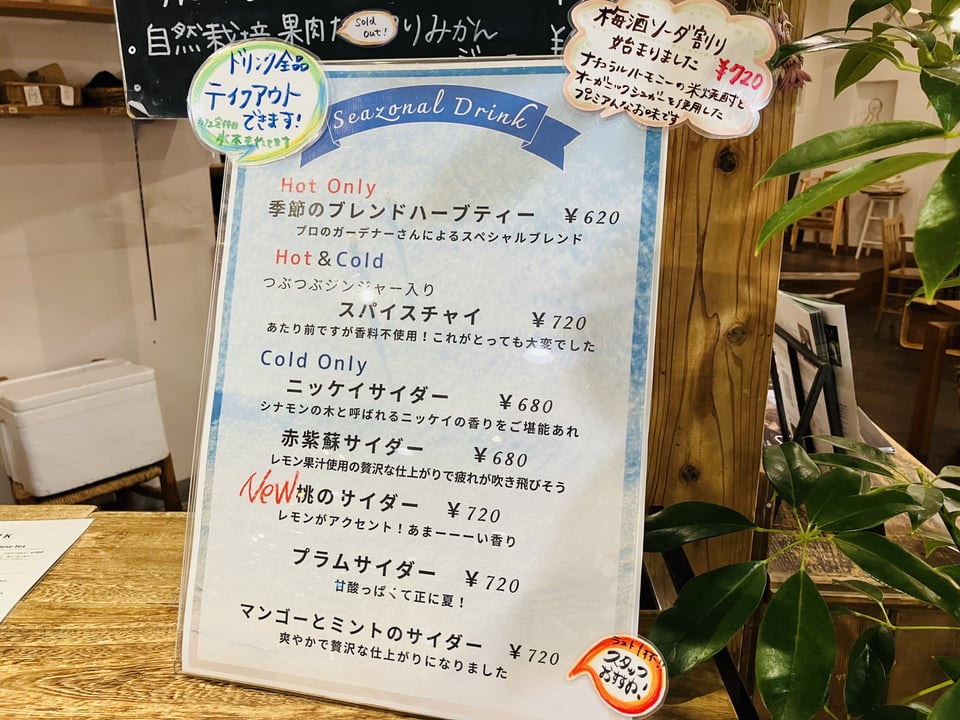 自然栽培果肉たっぷりみかん
Sold
out!
ドリンク全品
テイクアウト
できます!
梅酒ソーダ割り
始まりました
¥720
ナチュラルハーモニーの米焼酎と
オーガニックシュガーを使用した
プレミアムなお味です
Seazonal Drink
Hot Only
季節のブレンドハーブティー ¥620
プロのガーデナーさんによるスペシャルブレンド
Hot&Cold
つぶつぶジンジャー入り
スパイスチャイ ¥720
あたり前ですが香料不使用!これがとっても大変でした
Cold Only
ニッケイサイダー ¥680
シナモンの木と呼ばれるニッケイの香りをご堪能あれ
赤紫蘇サイダー ¥680
レモン果汁使用の贅沢な仕上がりで疲れが吹き飛びそう
New 桃のサイダー ¥720
レモンがアクセント!あまーーーい香り
プラムサイダー ¥720
甘酸っぱくて正に夏!
マンゴーとミントのサイダー ¥720
爽やかで贅沢な仕上がりになりました
スタッフ
おすすめ!